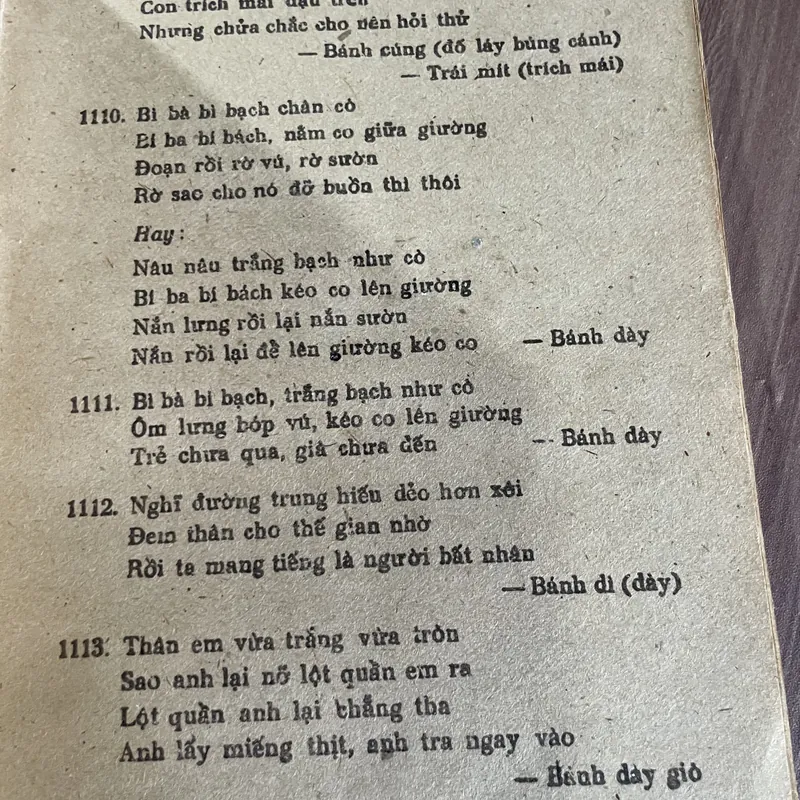 Con trích mái đậu trên
Nhưng chửa chắc cho nên hỏi thử
— Bánh cúng (đố láy bủng cánh)
— Trái mít (trích mái)
1110. Bì bà bì bạch chân cò
Bí ba bí bách, nằm co giữa giường
Đoạn rồi rờ vú, rờ sườn
Rờ sao cho nó đỡ buồn thì thôi
Hay:
Nâu nâu trắng bạch như cò
Bí ba bí bách kéo co lên giường
Nắn lưng rồi lại nắn sườn
Nắn rồi lại đè lên giường kéo co — Bánh dày
1111. Bì bà bì bạch, trắng bạch như cò
Ôm lưng bóp vú, kéo co lên giường
Trẻ chưa qua, già chưa đến — Bánh dày
1112. Nghĩ đường trung hiếu dẻo hơn xôi
Đem thân cho thế gian nhờ
Rồi ta mang tiếng là người bất nhân
— Bánh dì (dày)
1113. Thân em vừa trắng vừa tròn
Sao anh lại nỡ lột quần em ra
Lột quần anh lại chẳng tha
Anh lấy miếng thịt, anh tra ngay vào
— Bánh dày giò